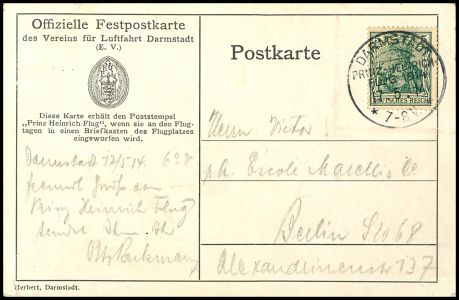 Offizielle Festpostkarte
des Vereins für Luftfahrt Darmstadt
(E. V.)
Diese Karte erhält den Poststempel
„Prinz Heinrich-Flug", wenn sie an den Flug-
tagen in einen Briefkasten des Flugplatzes
eingeworfen wird.
Darmstadt 17/5 14.
Prinz Heinrich Flug
sendet Ihnen Ihr
Herbert, Darmstadt.
Postkarte
DARMSTADT
PRINZ HEINRICH
FLUG
* 7-8V.
5
DEUTSCHES REICH
Herrn Victor
p. a. Ercole Marelli & Co
Berlin SW 68
Alexandrinenstr 137